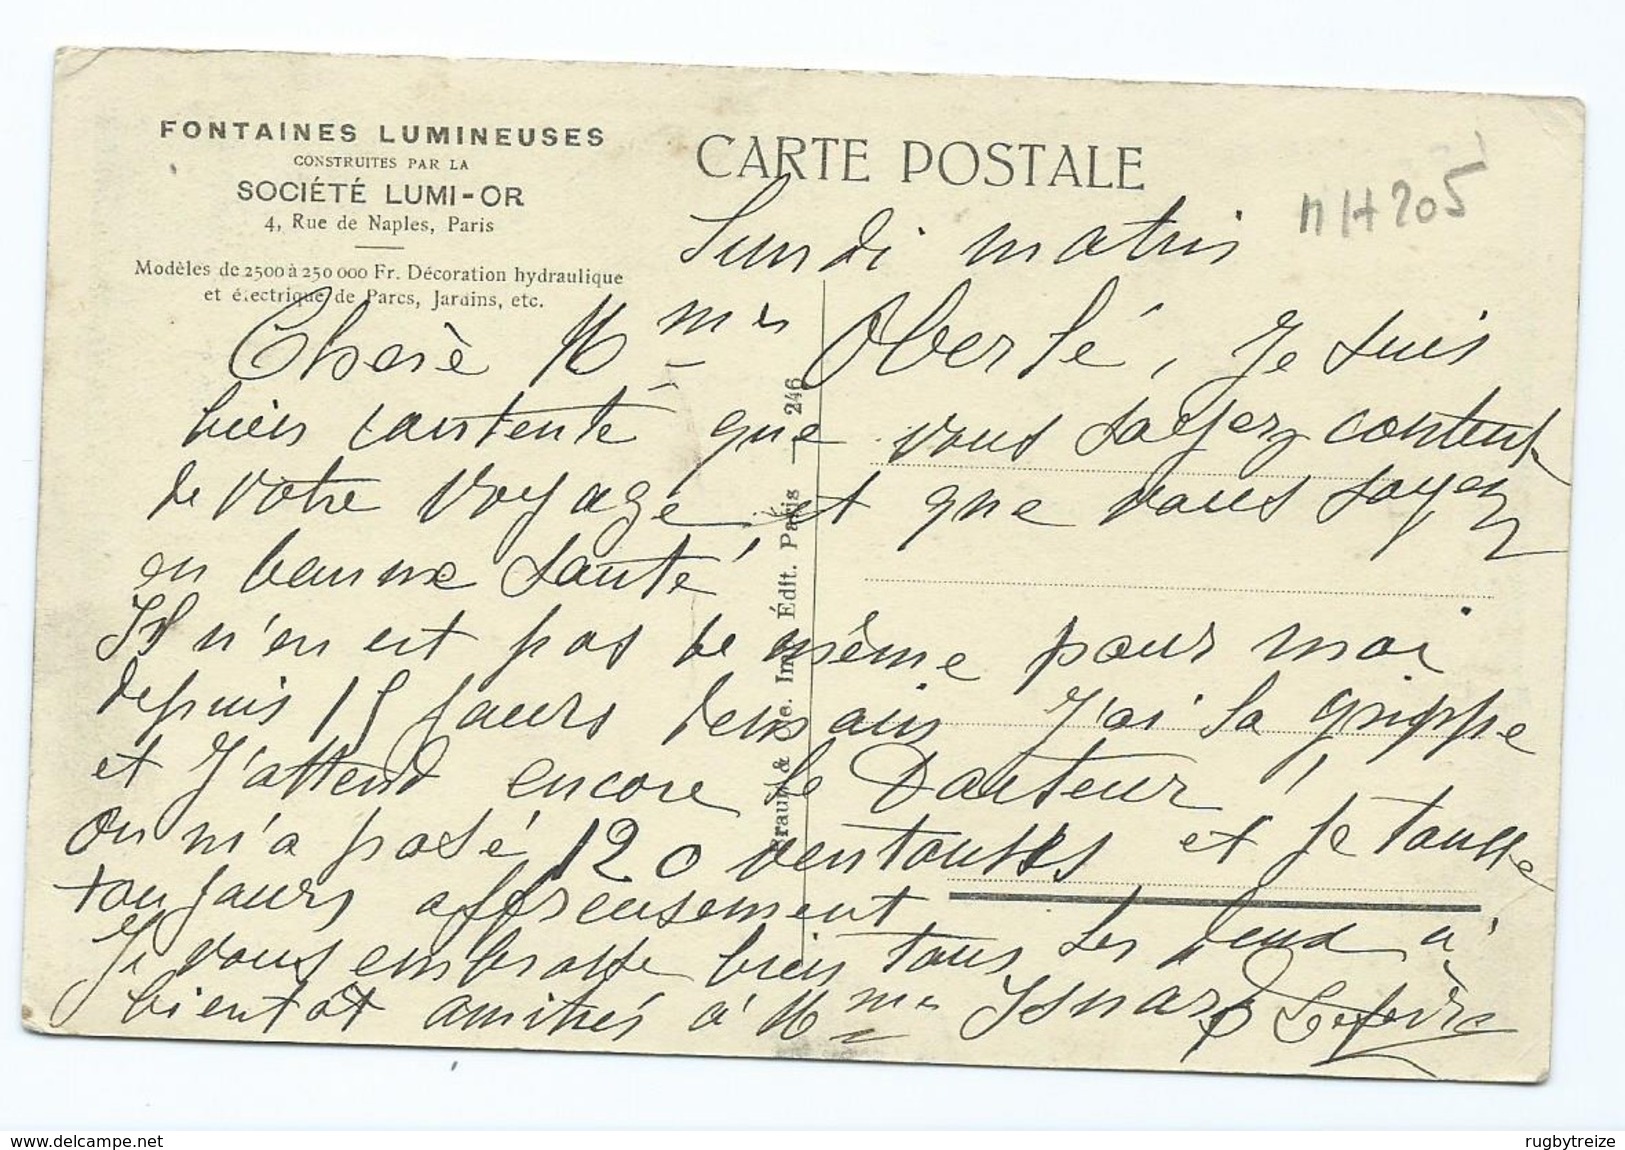 FONTAINES LUMINEUSES
CONSTRUITES PAR LA
SOCIÉTÉ LUMI-OR
4, Rue de Naples, Paris
Modèles de 2500 à 250 000 Fr. Décoration hydraulique
et électrique de Parcs, Jardins, etc.
CARTE POSTALE
nH205
Lundi matin
Chère Mmes Oberlé, Je suis
bien contente que vous soyez contente
de votre voyage et que vous soyez
en bonne santé
Il n'en est pas de même pour moi
depuis 15 jours demain J'ai la grippe
et J'attend encore le Docteur
On m'a posé 120 ventouses et je tousse
toujours affreusement
Je vous embrasse bien tous les deux a'
bientôt amitiés à Mmes Isnard Lefèvre
& Cie. Imp. Édit. Paris — 246
www.delcampe.net
rugbytreize